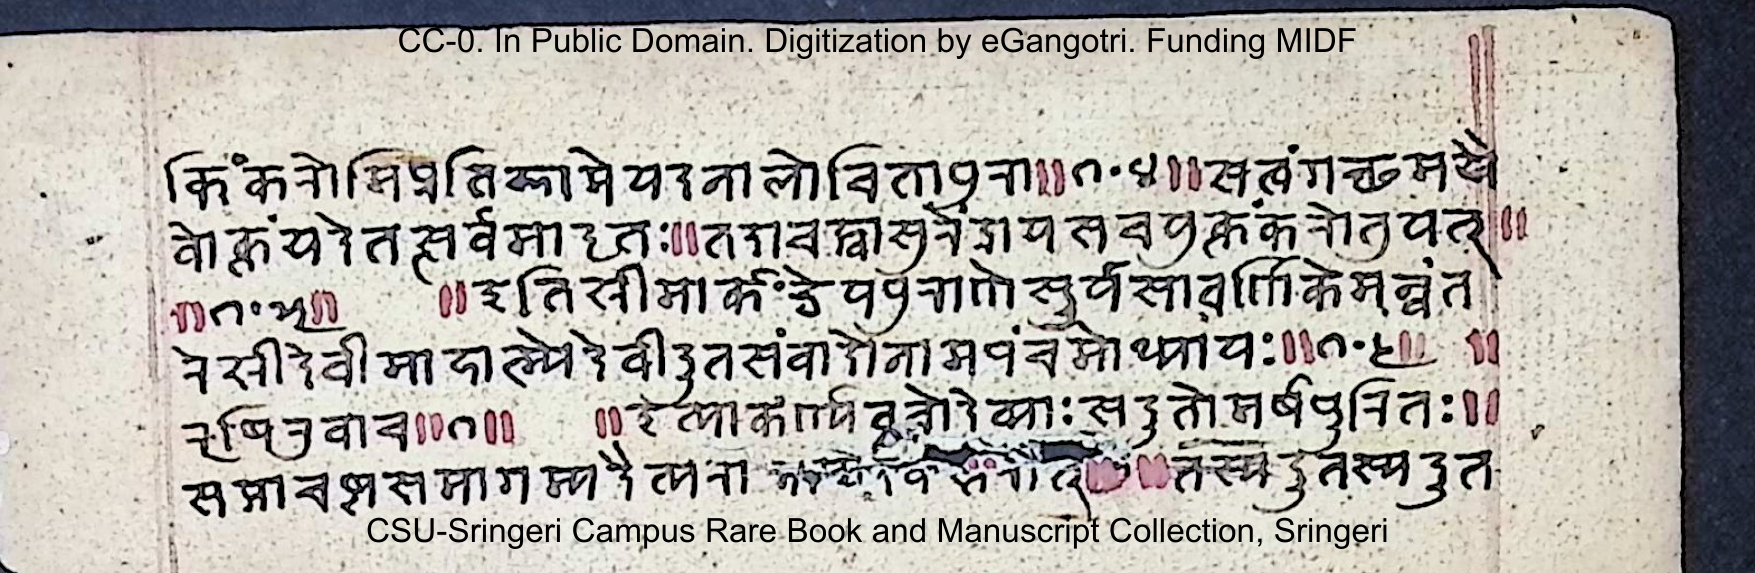 CC-0. In Public Domain. Digitization by eGangotri. Funding MIDF
किं करोमि प्रतिज्ञा मे यदनालोचिता पुरा॥१०४॥स त्वं गच्छ मयै
वोक्तं यदेतत्सर्वमादृतः॥तदाचक्ष्वासुरेंद्राय स च युक्तं करोतु यत्॥
॥१०५॥ ॥इति स्रीमार्कंडेयपुराणे सुर्यसावर्णिके मन्वंत
रे स्रीदेवीमाहात्म्ये देवीदुतसंवादो नाम पंचमोध्यायः॥१०५॥ ॥
रुषिरुवाच॥१॥ ॥इत्याकर्ण्य वचो देव्याः स दुतोमर्षपुरितः॥
समाचष्ट समागम्य दैत्यरा विस्तरात्॥ ॥तस्य दुतस्य दुत
CSU-Sringeri Campus Rare Book and Manuscript Collection, Sringeri